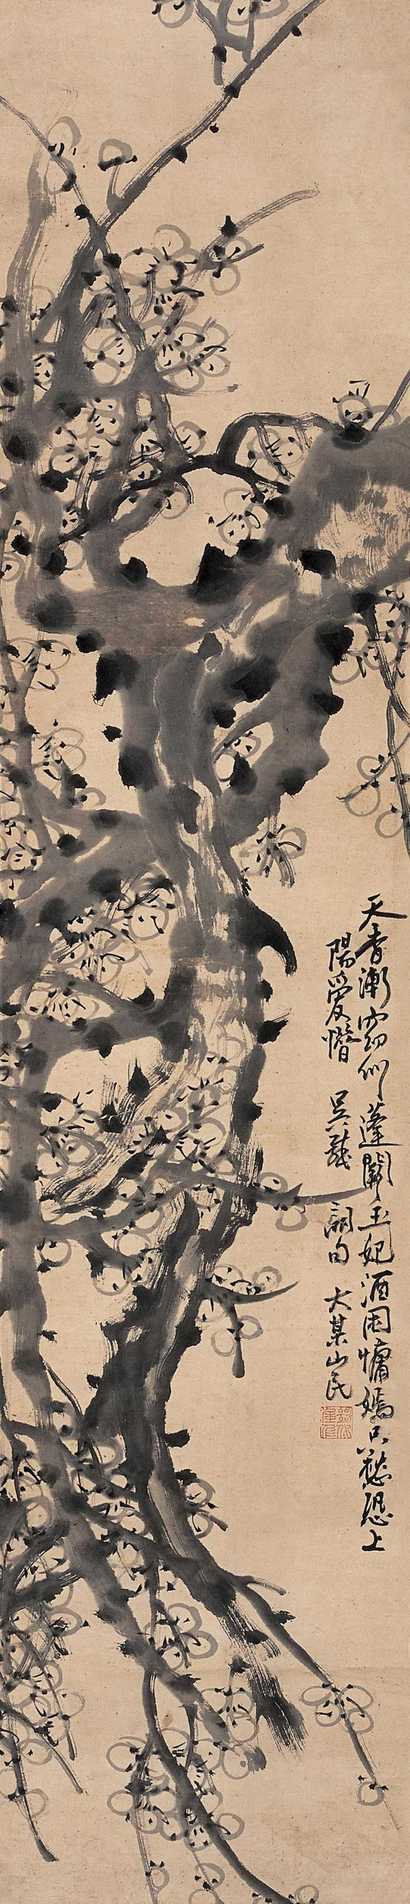 天香漸似蓬闕玉妃酒困慵嬌只愁恐上
陽愛惜 吳 詞句 大某山民